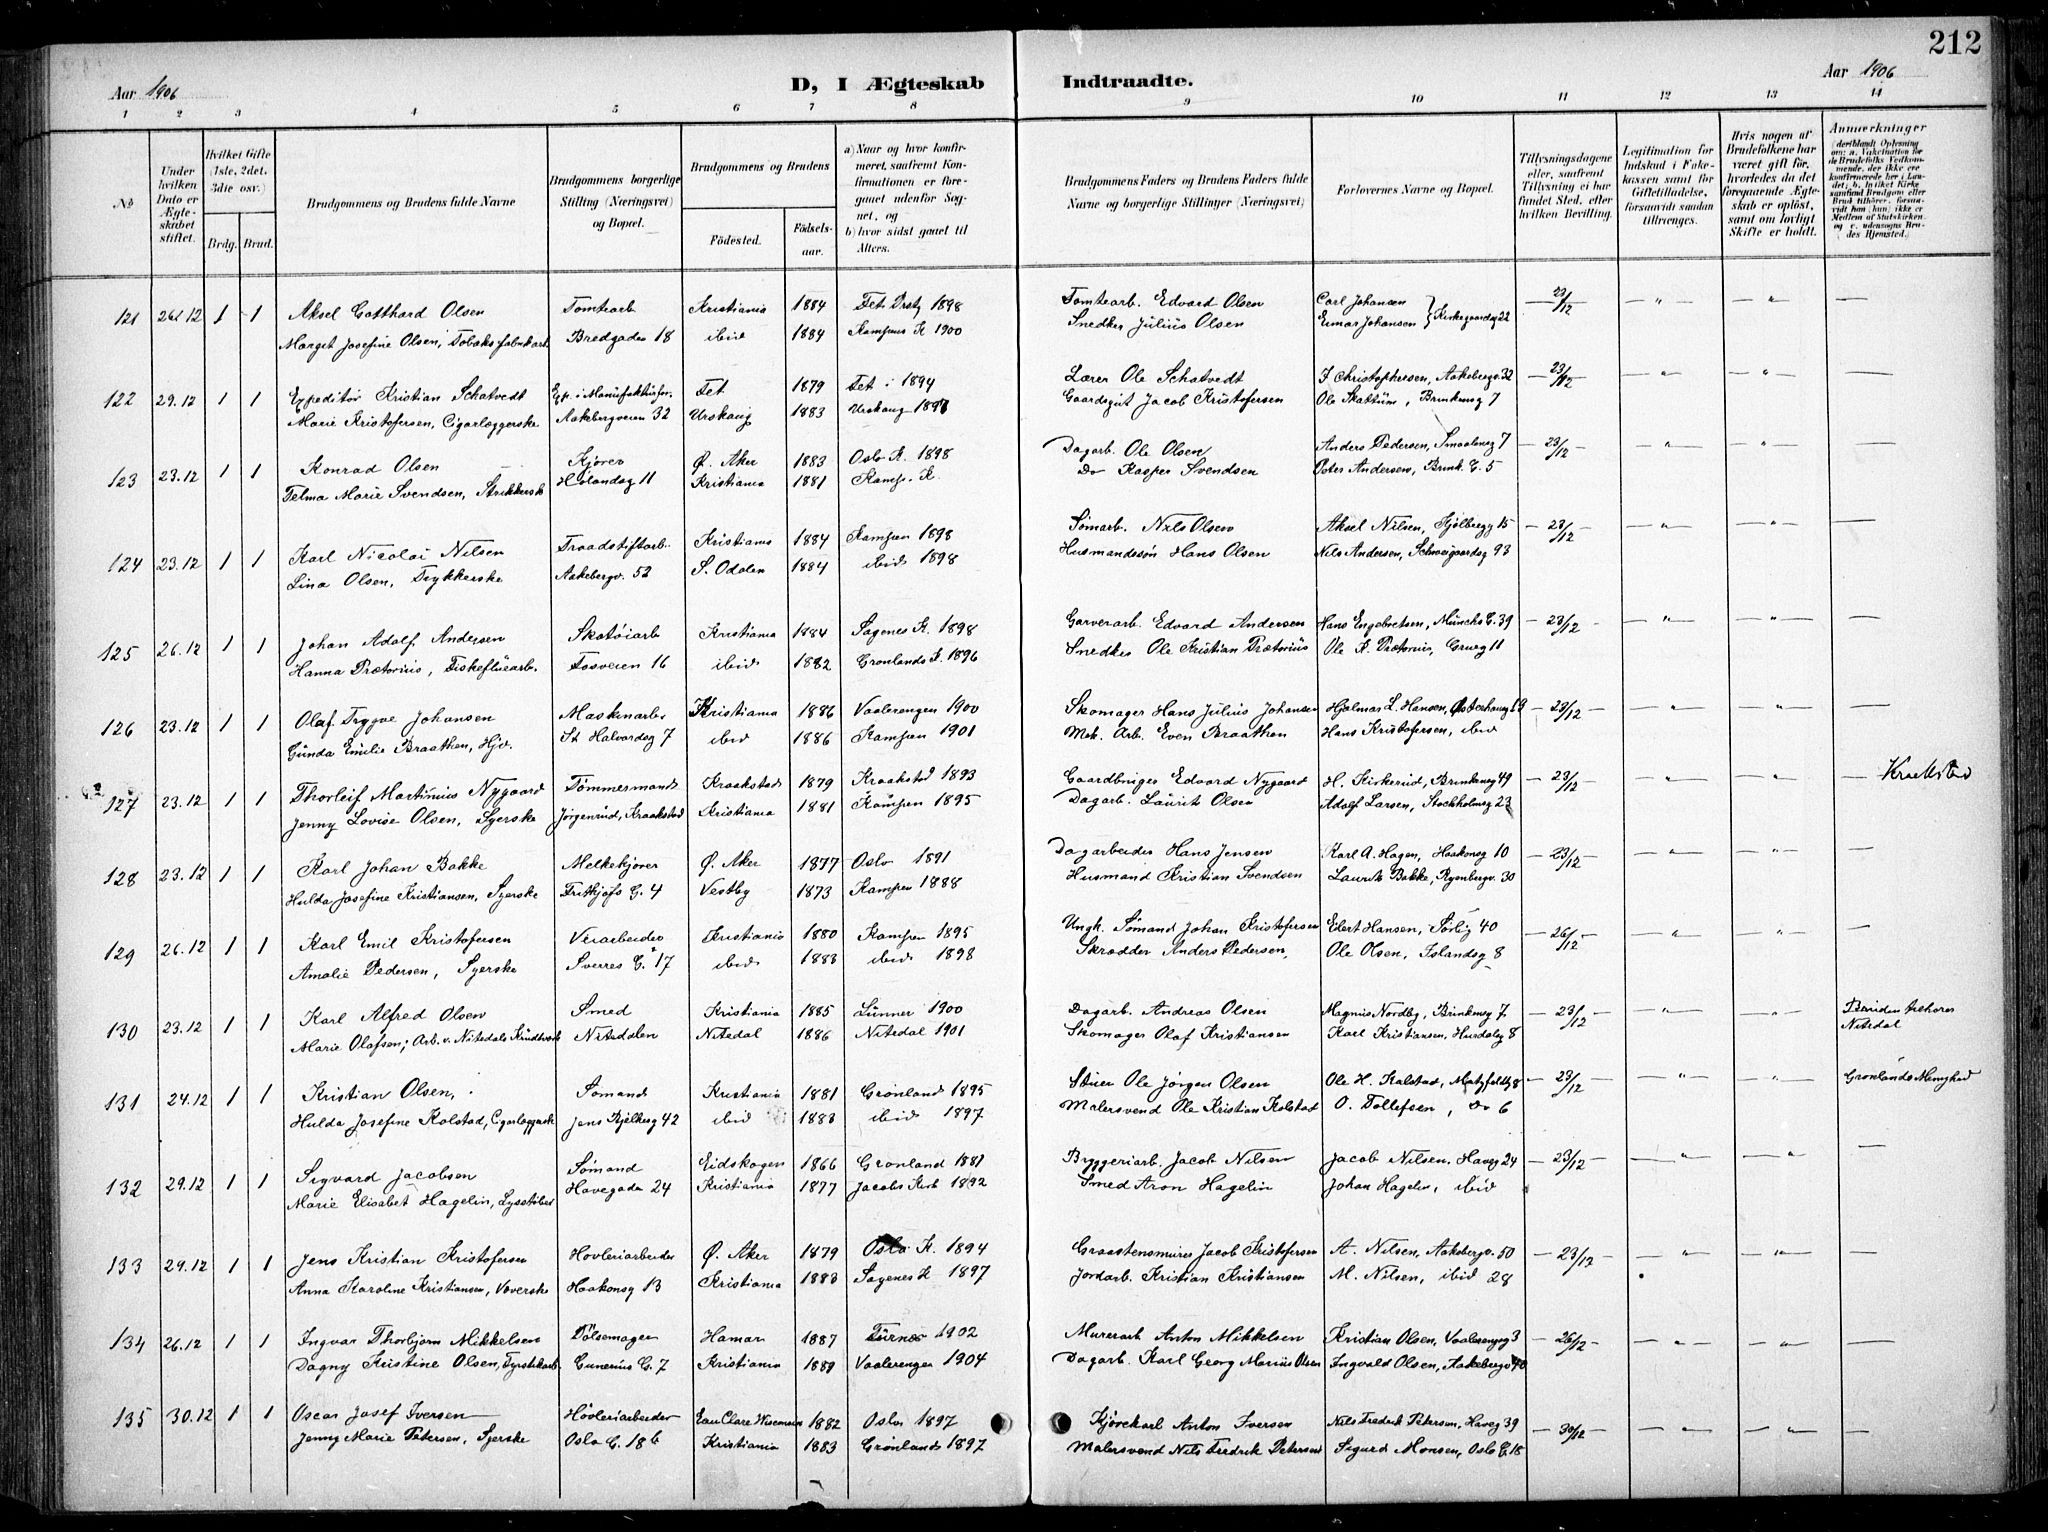 212
Aar 1906
D, I Ægteskab
Indtraadte.
Aar 1906
1 2 3 4 5 6 7 8 9 10 11 12 13 14
№
Under hvilken Dato er Ægteskabet stiftet.
Hvilket Gifte (1ste, 2det, 3die osv.)
Brdg. Brud.
Brudgommens og Brudens fulde Navne
Brudgommens borgerlige Stilling (Næringsvei) og Bopæl.
Brudgommens og Brudens
Födested.
Födselsaar.
a) Naar og hvor konfirmeret, saafremt Konfirmationen er foregaaet udenfor Sognet, og
b) hvor sidst gaaet til Alters.
Brudgommens Faders og Brudens Faders fulde Navne og borgerlige Stillinger (Næringsvei)
Forlovernes Navne og Bopæl.
Tillysningsdagene eller, saafremt Tillysning ei har fundet Sted, efter hvilken Bevilling.
Legitimation for Indskud i Enkekassen samt for Giftetilladelse, forsaavidt saadan tiltrænges.
Hvis nogen af Brudefolkene har været gift för, hvorledes da det foregaaende Ægteskab er oplöst, samt om lovligt Skifte er holdt.
Anmærkninger
121 26.12 1 1 Aksel Gotthard Olsen Tomtearb Kristiania 1884 Fet 1898 Tomtearb. Edvard Olsen Carl Johansen 23/12 — " — — " — —
Margit Josefine Olsen, Tobaksfabrikarb. Bredgaden 18 ibid 1884 Kampens K 1900 Snedker Julius Olsen Einar Johansen } Kirkegaardsg 22
122 29.12 1 1 Expeditör Kristian Schatvedt Exp. i Manufakturfor. Fet 1879 Fet i 1894 Lærer Ole Schatvedt J Christophersen, Aakebergv. 32 23/12 — " — — " — —
Marie Kristofersen, Cigarlæggerske Aakebergveien 32 Urskoug 1883 Urskoug 1897 Gaardsgut Jacob Kristofersen Ole Skattum, Brinkensg 7
123 23.12 1 1 Konrad Olsen Kjörer Ø. Aker 1883 Oslo K. 1898 Dagarb. Ole Olsen Anders Pedersen, Smaalensg 7 — 23/12 — — " — — " — —
Telma Marie Svendsen, Strikkersk Hölandsg 11 Kristiania 1881 Kamp. K. Do Kasper Svendsen Peter Andersen, Brink. G. 5
124 23.12 1 1 Karl Nicolai Nilsen Traadstiftarb. Kristiania 1884 Kampen 1898 Sömarb. Nils Olsen Aksel Nilsen, Kjölbergg 15 — 23/12 — — " — — " — —
Lina Olsen, Trykkerske Aakebergv. 52 S. Odalen 1884 ibid 1898 Husmandssön Hans Olsen Nils Andersen, Schweigaardsg 93
125 26.12 1 1 Johan Adolf Andersen Skotöiarb Kristiania 1884 Sagenes K. 1898 Garverarb. Edvard Andersen Hans Engebretsen, Münchs G. 39 — 23/12 — — " — — " — —
Hanna Prætorius, Fiskefluearb. Fosveien 16 ibid 1882 Grönlands K. 1896 Snedker Ole Kristian Prætorius Ole K. Prætorius, Grueg 11
126 23.12 1 1 Olaf Trygve Johansen Maskinarb Kristiania 1886 Vaalerengen 1900 Skomager Hans Julius Johansen Hjalmar L. Hansen, 23/12 — " — — " — —
Gunda Emilie Braathen, Hjv. St Halvardsg 7 ibid 1886 Kampen 1901 Mek. Arb. Even Braathen Hans Kristofersen, ibid
127 23.12 1 1 Thorleif Martinius Nygaard Tömmermand Kraakstad 1879 Kraakstad 1893 Gaardbruger Edvard Nygaard H. Kirkerud, Brinkensg 49 — 23/12 — — " — — " — — Kraakstad
Jenny Lovise Olsen, Syerske Jörgenrud, Kraakstad Kristiania 1881 Kampen 1895 Dagarb. Laurits Olsen Adolf Larsen, Stockholmsg 23
128 23.12 1 1 Karl Johan Bakke Melkekjörer Ø. Aker 1877 Oslo 1891 Dagarbeider Hans Jensen Karl A. Hagen, Haakonsg 10 — 23/12 — — " — — " — —
Hulda Josefine Kristiansen, Syerske Frithjofs G. 4 Vestby 1873 Kampen 1888 Husmand Kristian Svendsen Laurits Bakke, Ryenbergv. 30
129 26.12 1 1 Karl Emil Kristofersen Veiarbeider Kristiania 1880 Kampen 1895 Ungk. Sömand Johan Kristofersen Elert Hansen, Sörlig 40 — 26/12 — — " — — " — —
Amalie Pedersen, Syerske Sverres G. 17 ibid 1883 ibid 1898 Skrædder Anders Pedersen, Ole Olsen, Islandsg 8
130 23.12 1 1 Karl Alfred Olsen Smed Kristiania 1885 Lunner 1900 Dagarb. Andreas Olsen Magnus Nordby, Brinkensg 7 — 23/12 — — " — — " — Bruden tilhörer
Marie Olafsen; Arb. v. Nitedals Krudtværk Nitedalen Nitedal 1886 Nitedal 1901 Skomager Olaf Kristiansen Karl Kristiansen, Hurdalsg 8 Nitedal
131 24.12 1 1 Kristian Olsen, Sömand Kristiania 1881 Grönland 1895 Stuer Ole Jörgen Olsen Ole H. Kolstad, 8 — 23/12 — — " — — " — Grönlands Menighed
Hulda Josefine Kolstad, Cigarlæggersk Jens Bjelkesg 42 ibid 1883 ibid 1897 Malersvend Ole Kristian Kolstad O. Tollefsen, Do 6
132 29.12 1 1 Sigvard Jacobsen Sömand Eidskogen 1866 Grönland 1881 Byggeriarb. Jacob Nilsen Jacob Nilsen, Haveg 24 — 23/12 — — " — — " — —
Marie Elisabet Hagelin, Lysstöber Havegaden 24 Kristiania 1877 Jacobs Kirk 1892 Smed Aron Hagelin Johan Hagelin, ibid
133 29.12 1 1 Jens Kristian Kristofersen Hövleriarbeider Ø. Aker 1879 Oslo K. 1894 Graastensmurer Jacob Kristofersen A. Nilsen, Aakebergv. 50 — 23/12 — — " — — " — —
Anna Karoline Kristiansen, Væverske Haakonsg 13 Kristiania 1883 Sagenes K 1897 Jordarb. Kristian Kristiansen M. Nilsen, ibid 28
134 26.12 1 1 Ingvar Thorbjörn Mikkelsen Pölsemager Hamar 1887 Furnes 1902 Murerarb Anton Mikkelsen Kristian Olsen, Vaalerengsg 3 — 26/12 — — " — — " — —
Dagny Kristine Olsen, Fyrstikarb. Gunerius G. 7 Kristiania 1889 Vaalerengen 1904 Dagarb. Karl Georg Marius Olsen Ingvald Olsen, Aakebergv 40
135 30.12 1 1 Oscar Josef Iversen Hövleriarbeider Eau Clare Wisconsin 1882 Oslo 1897 Kjörekarl Anton Iversen Nils Fredrik Petersen, Haveg 39 — 30/12 — — " — — " — —
Jenny Marie Petersen, Syerske Oslo G. 18 b Kristiania 1883 Grönland 1897 Malersvend Nils Fredrik Petersen Sigurd Monsen, Oslo G. 18